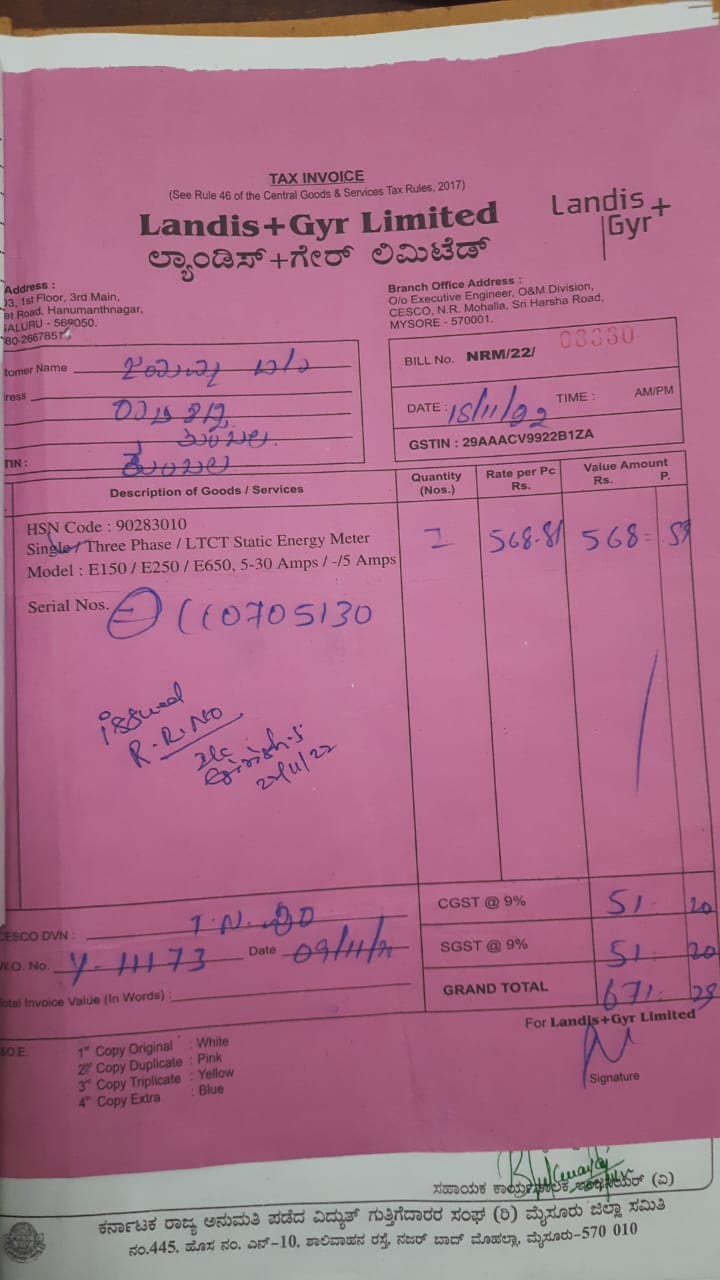 TAX INVOICE
(See Rule 46 of the Central Goods & Services Tax Rules, 2017)
Landis+Gyr Limited
ಲ್ಯಾಂಡಿಸ್+ಗೇರ್ ಲಿಮಿಟೆಡ್
Landis+
Gyr
Address :
03, 1st Floor, 3rd Main,
et Road, Hanumanthnagar,
GALURU - 560050.
Branch Office Address :
O/o Executive Engineer, O&M Division,
CESCO, N.R. Mohalla, Sri Harsha Road,
MYSORE - 570001.
tomer Name
ress
TIN :
BILL No. NRM/22/
DATE : 15/11/22 TIME : AM/PM
GSTIN : 29AAACV9922B1ZA
Description of Goods / Services
Quantity
(Nos.)
Rate per Pc
Rs.
Value Amount
Rs. P.
HSN Code : 90283010
Single / Three Phase / LTCT Static Energy Meter
Model : E150 / E250 / E650, 5-30 Amps / -/5 Amps
1 568-81 568=
Serial Nos.
issued
R.R.NO
Girish.S
22/11/22
CESCO DVN :
W.O. No. Y-11173 Date 09/11/
Total Invoice Value (In Words) :
CGST @ 9% 51 20
SGST @ 9% 51 20
GRAND TOTAL 671
For Landis+Gyr Limited
Signature
&O.E.
1st Copy Original : White
2nd Copy Duplicate : Pink
3rd Copy Triplicate : Yellow
4th Copy Extra : Blue
ಸಹಾಯಕ ಕಾರ್ಯಪಾಲಕ (ವಿ)
ಕರ್ನಾಟಕ ರಾಜ್ಯ ಅನುಮತಿ ಪಡೆದ ವಿದ್ಯುತ್ ಗುತ್ತಿಗೆದಾರರ ಸಂಘ (ರಿ) ಮೈಸೂರು ಜಿಲ್ಲಾ ಸಮಿತಿ
ನಂ.445, ಹೊಸ ನಂ. ಎನ್-10, ಶಾಲಿವಾಹನ ರಸ್ತೆ, ನಜರ್ ಬಾದ್ ಮೊಹಲ್ಲಾ, ಮೈಸೂರು-570 010